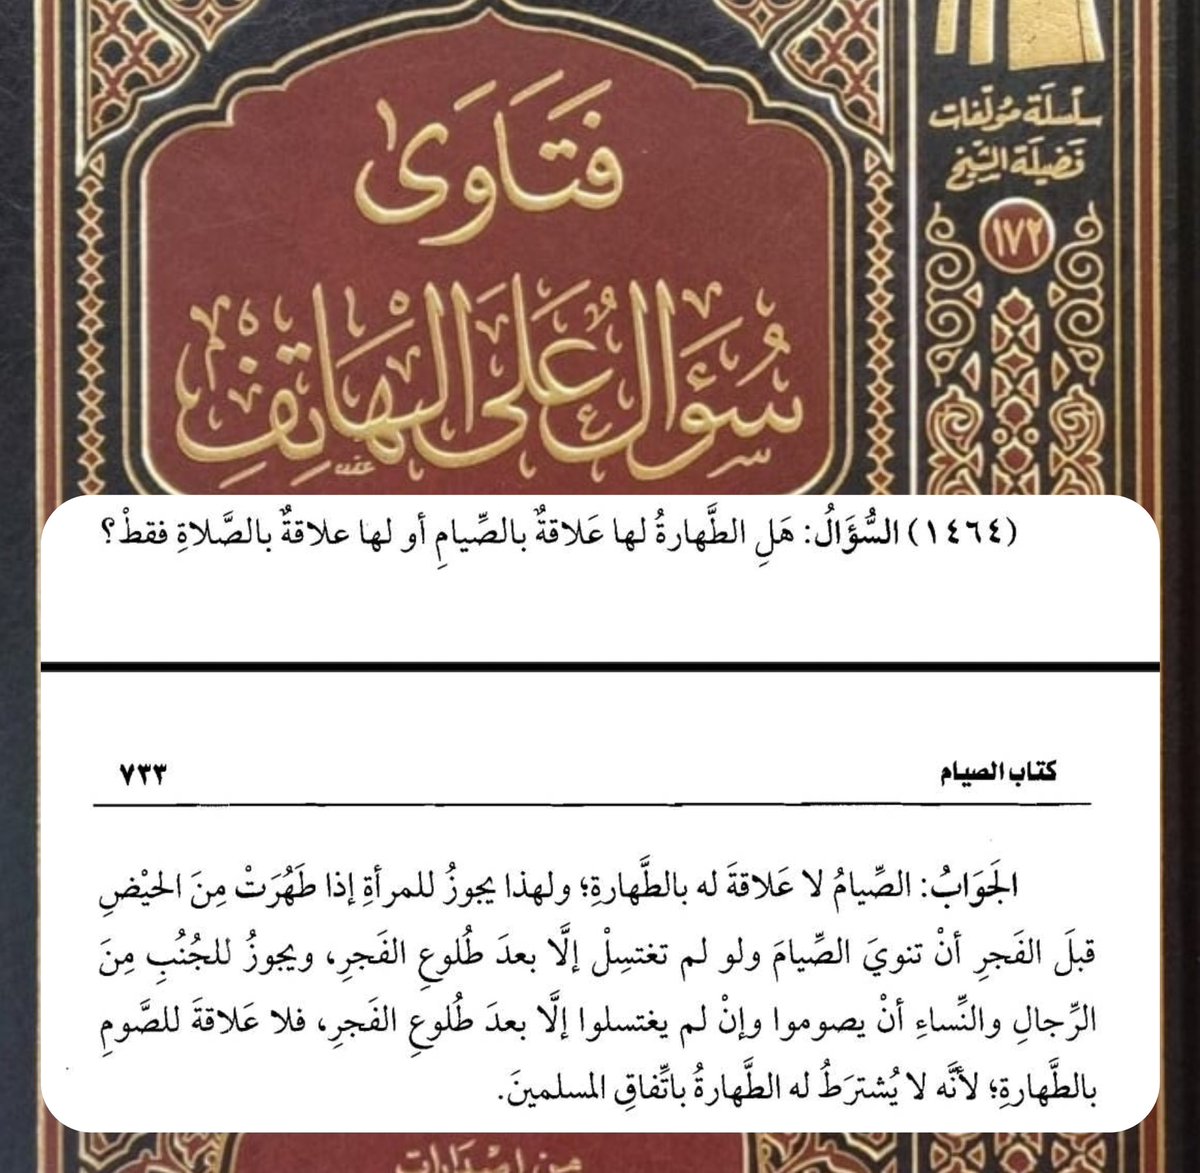 فَتَاوَى
سُؤَال عَلَى الهَاتِف
سلسلة مؤلفات
فضيلة الشيخ
١٧٢
(١٤٦٤) السُّؤَالُ: هَلِ الطَّهارةُ لها عَلاقةٌ بالصِّيامِ أو لها علاقةٌ بالصَّلاةِ فقطْ؟
كتاب الصيام
٧٣٣
الجَوَابُ: الصِّيامُ لا عَلاقةَ له بالطَّهارةِ؛ ولهذا يجوزُ للمرأةِ إذا طَهُرَتْ مِنَ الحيْضِ
قبلَ الفَجرِ أنْ تنويَ الصِّيامَ ولو لم تغتسِلْ إلَّا بعدَ طُلوعِ الفَجرِ، ويجوزُ للجُنُبِ مِنَ
الرِّجالِ والنِّساءِ أنْ يصوموا وإنْ لم يغتسلوا إلَّا بعدَ طُلوعِ الفَجرِ، فلا عَلاقةَ للصَّومِ
بالطَّهارةِ؛ لأنَّه لا يُشترَطُ له الطَّهارةُ باتِّفاقِ المسلمينَ.
من إصدارات